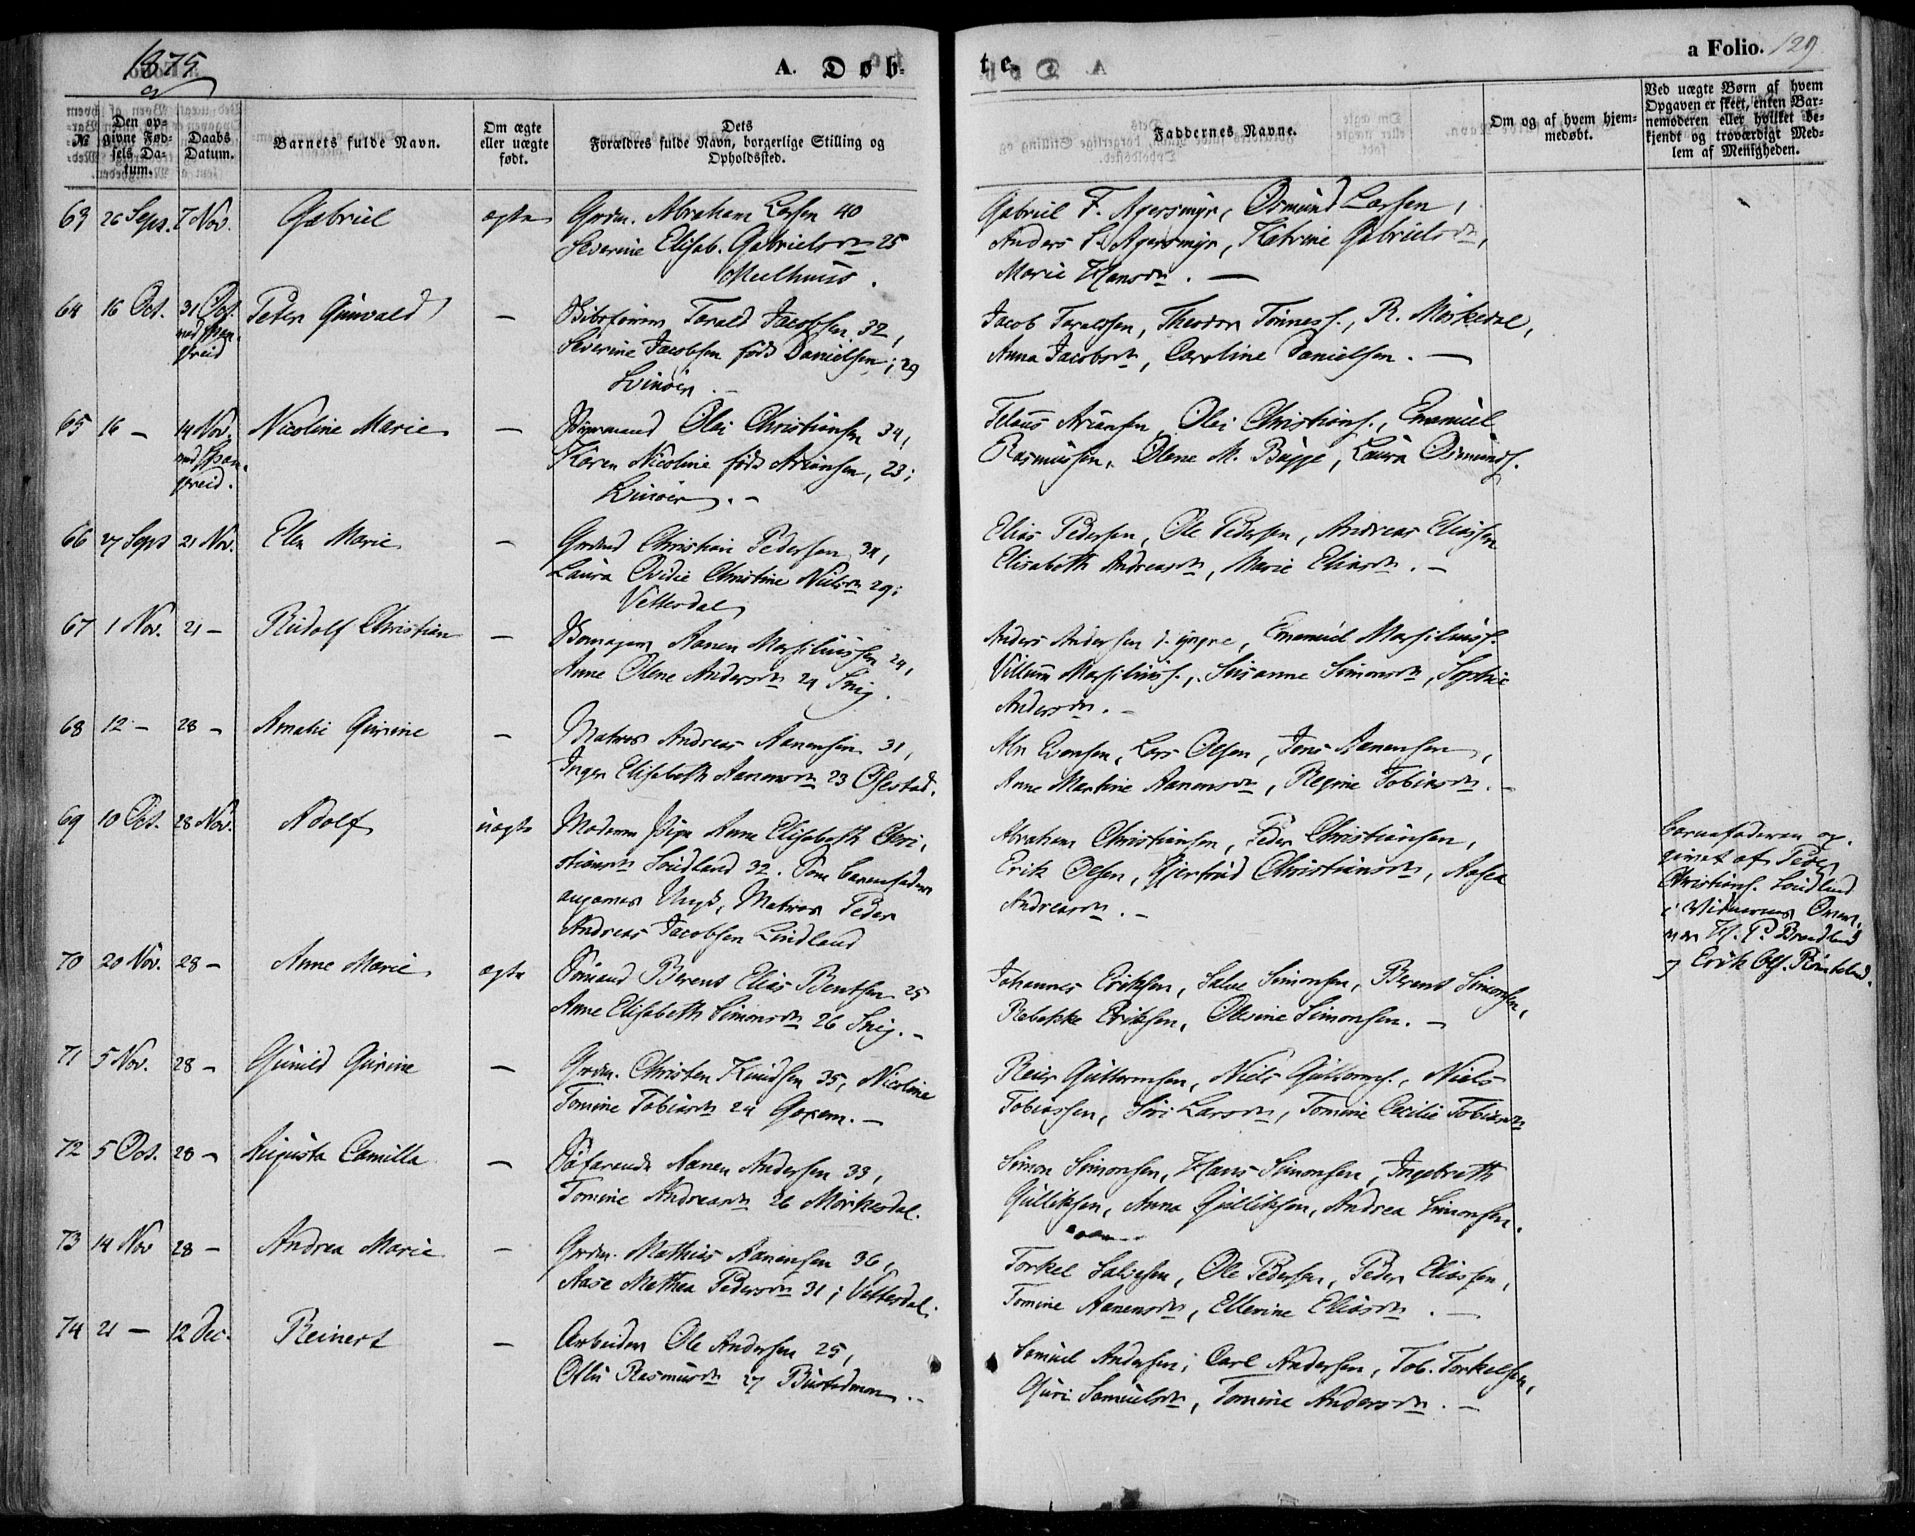 1875
A. Døb-
te.
a Folio. 129
№
Den op-
givne Fød-
sels Da-
tum.
Daabs
Datum.
Barnets fulde Navn.
Om ægte
eller uægte
født.
Dets
Forældres fulde Navn, borgerlige Stilling og
Opholdssted.
Faddernes Navne.
Om og af hvem hjem-
medøbt.
Ved uægte Børn af hvem
Opgaven er skeet, enten Bar-
nemoderen eller hvilket be-
kjendt og troværdigt Med-
lem af Menigheden.
63 26 Sept. 7 Nov. Gabriel ægte Grdm. Abraham Larsen 40
Severine Elisab. Gabrielsdtr 25
Meelhuus.
Gabriel F. Agersmyr, Osmund Larsen,
Anders Agersmyr, Katrine Gabrielsdtr,
Marie Hansdtr. —
64 16 Oct. 31 Oct. Peter Gunvald — Tarald Jacobsen 32,
Severine Jacobsen født Danielsen; 29
Svinøer
Jacob Taraldsen, Theodor Tønness., R. Mörkedal,
Anna Jacobsdtr, Caroline Danielsen. —
65 16 — 14 Nov. Nicoline Marie — Olai Christiansen 34,
Karen Nicoline født Ariansen, 23;
Svinøer. —
Ariansen, Olai Christians., Emanuel
Rasmussen, Olene M. Bugge, Laura Osmunds.
66 27 Sept 21 Nov. Elen Marie — Christian Pedersen 34,
Laura Ovidie Christine Nielsdtr 29;
Vetterdal
Elias Pedersen, Ole Pedersen, Andreas Eliassen
Elisabeth Andreasdtr, Marie Eliasdtr. —
67 1 Nov. 21 — Rudolf Christian — Aanen Marsiliussen 24,
Anne Olene Andersdtr 24 Snig.
Anders Andersen d. yngre, Emanuel Marsilius.
Villum Marsilius., Susanne Simonsdtr, Sophie
Andersdtr. —
68 12 — 28 — Amalie Gurine — Matros Andreas Aanensen 31,
Inger Elisabeth Aanensdtr 23 Ofestad.
Evensen, Lars Olsen, Jens Aanensen,
Anne Martine Aanensdtr, Regine Tobiasdtr. —
69 10 Oct. 28 Nov. Adolf uægte Moderen Pige Anne Elisabeth Chri-
stiansdtr Lindland 32. Som barnefader
angaves Ungk. Matros Peder
Andreas Jacobsen Lindland
Abraham Christiansen, Peder Christiansen,
Erik Olsen, Gjertrud Christiansdtr, Aasea
Andreasdtr. —
Barnefaderen op-
givet af Peder
Christians. Lindland
i Vidnernes Overv.
P. Brædland
og Erik Ols.
70 20 Nov. 28 — Anne Marie ægte Sömand Berent Elias Bentsen 25
Anne Elisabeth Simonsdtr 26 Snig. —
Johannes Eriksen, Salve Simonsen, Berent Simonsen,
Rebekke Eriksen, Olevine Simonsen. —
71 5 Nov. 28 — Gunild Gurine — Grdm. Christen Knudsen 35, Nicoline
Tomine Tobiasdtr 24 —
Reier Guttormsen, Niels Guttorms., Niels
Tobiassen, Siri Larsdtr, Tomine Cecilie Tobiasdtr
72 5 Oct. 28 — Augusta Camilla — Söfarende Aanen Andersen 33,
Tomine Andreasdtr 26 Mörkedal.
Simon Simonsen, Hans Simonsen, Ingebreth
Gulliksen, Anna Gulliksen, Andrea Simonsen.
73 14 Nov 28 — Andrea Marie — Grdm. Mathias Aanensen 36,
Aase Mathea Pedersdtr 31; Vetterdal.
Torkel Salvesen, Ole Pedersen, Peder Eliassen,
Tomine Aanensdtr, Ellevine Eliasdtr. —
74 21 — 12 Dec. Reinert — Arbeider Ole Andersen 25,
Rasmusdtr 27
Samuel Andersen; Carl Andersen, Tob. Torkelsen,
Guri Samuelsdtr, Tomine Andersdtr. —